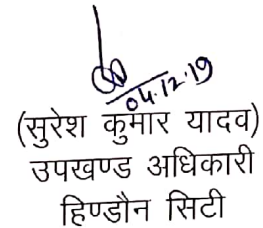 04.12.19
(सुरेश कुमार यादव)
उपखण्ड अधिकारी
हिण्डौन सिटी